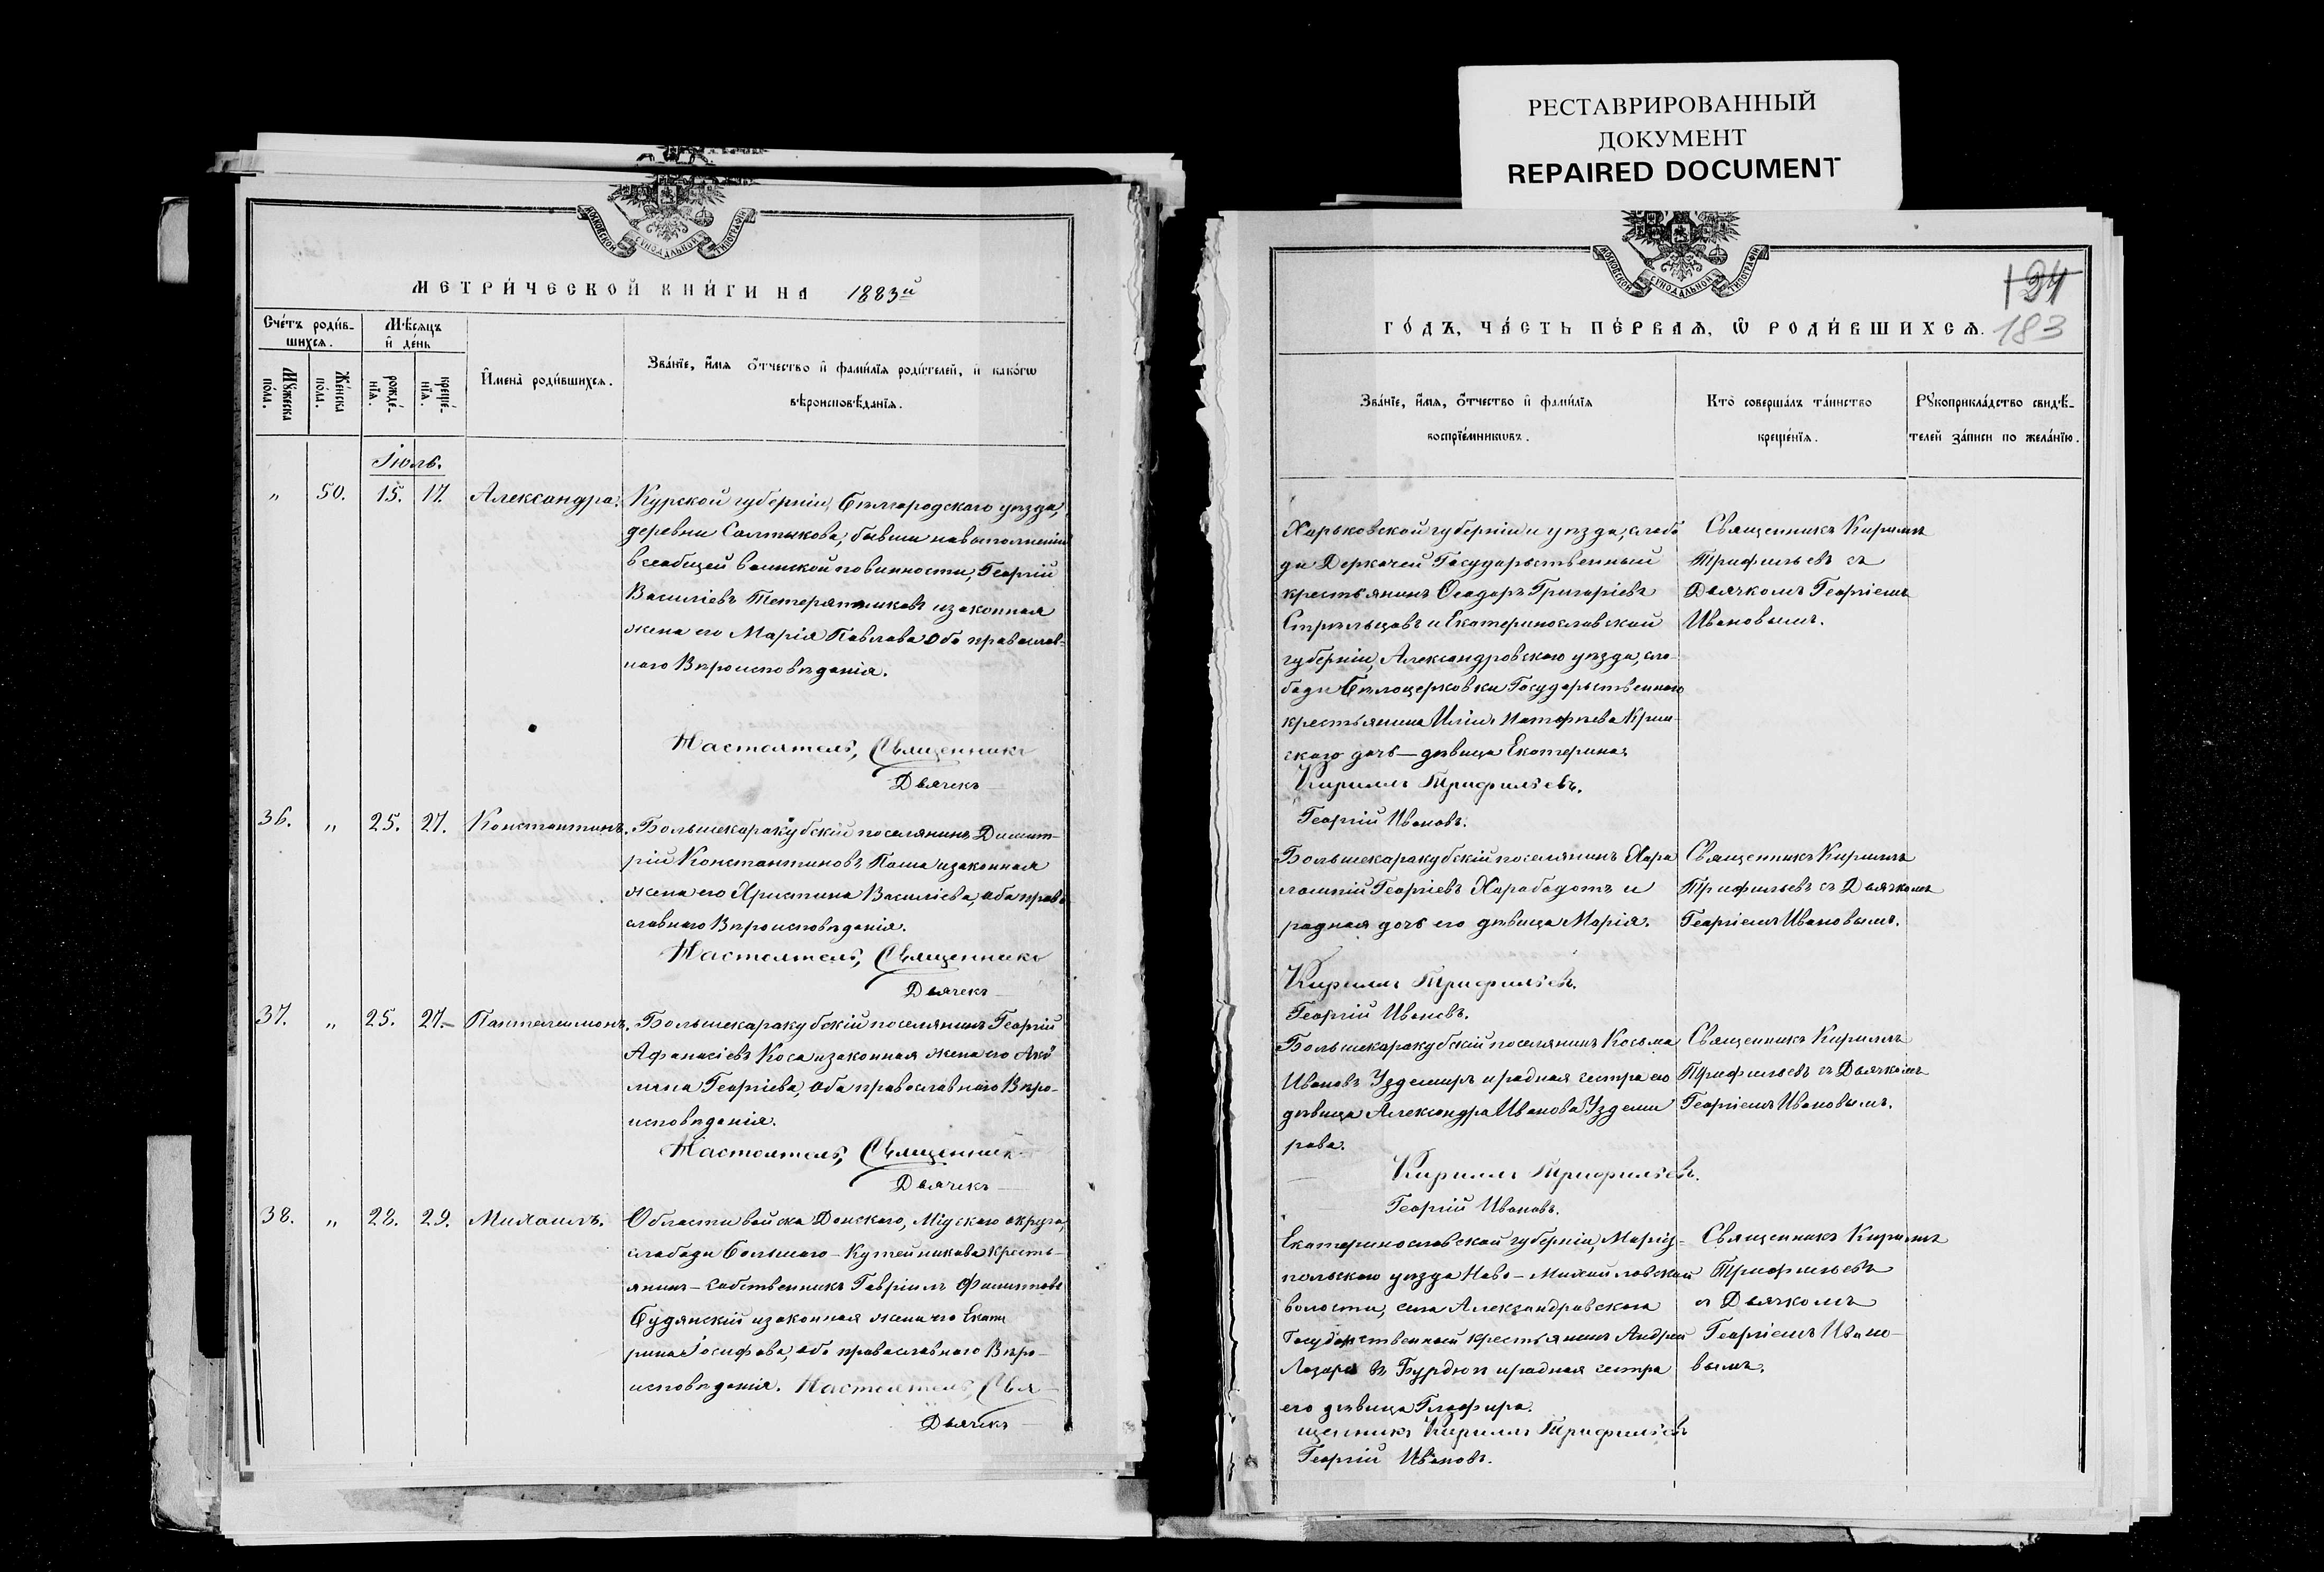 РЕСТАВРИРОВАННЫЙ
ДОКУМЕНТ
REPAIRED DOCUMENT
МОСКОВСКОЙ СѴНОДАЛЬНОЙ ТИПОГРАФІИ
МЕТРИ́ЧЕСКОЙ КНИ́ГИ НА 1883й
Сче́тъ роди́в-
шихсѧ.
Мѣ́сѧцъ
и҆ де́нь
Мꙋ́жеска
по́ла.
Же́нска
по́ла.
рожде́-
нїѧ.
креще́-
нїѧ.
И҆мена̀ роди́вшихсѧ.
Зва́нїе, и҆́мѧ ѻ҆́тчество и҆ фами́лїѧ роди́телей, и҆ како́гѡ
вѣроисповѣ́данїѧ.
Іюль.
„ 50. 15. 17. Александра.
Курской губерніи, Бѣлгородскаго уѣзда,
деревни Салтыкова, бывши на выполненіи
всеобщей воинской повинности, Георгій
Василіевъ Тетерятниковъ и законная
жена его Марія Павлова оба православ-
наго Вѣроисповѣданія.
Настоятель, Священникъ
Дьячекъ
36. „ 25. 27. Константинъ.
Большекаракубскій поселянинъ Димит-
рій Константиновъ Паша и законная
жена его Христина Василіева, оба право
славнаго Вѣроисповѣданія.
Настоятель, Священникъ
Дьячекъ
37. „ 25. 27. Пантелеимонъ.
Большекаракубскій поселянинъ Георгій
Афанасіевъ Коса и законная жена его Аки
лина Георгіева, оба православнаго Вѣро-
исповѣданія.
Настоятель, Священникъ
Дьячекъ
38. „ 28. 29. Михаилъ.
Области войска Донскаго, Міускаго округа,
слободы Большаго-Кутейникова кресть-
янинъ-собственникъ Гавріилъ
Будянскій и законная жена его Екате
рина Іосифова, оба православнаго Вѣро-
исповѣданія. Настоятель, Свя-
Дьячекъ
МОСКОВСКОЙ СѴНОДАЛЬНОЙ ТИПОГРАФІИ
124
183
ГО́ДЪ, ЧА́СТЬ ПЕ́РВАѦ, Ѽ РОДИ́ВШИХСѦ.
Зва́нїе, и҆́мѧ, ѻ҆́тчество и҆ фами́лїѧ
воспрїе́мникѡвъ.
Кто̀ соверша́лъ та́инство
креще́нїѧ.
Рꙋкоприкла́дство свидѣ́-
телей за́писи по жела́нїю.
Харьковской губерніи и уѣзда, слобо
ды Деркачей Государственный
крестьянинъ Ѳеодоръ Григоріевъ
Стрѣльцовъ и Екатеринославской
губерніи, Александровскаго уѣзда, сло-
боды Бѣлоцерковки Государственнаго
крестьянина Иліи Матфѣева Крин
скаго дочь—дѣвица Екатерина.
Священникъ Кириллъ
Трифильевъ съ
Дьячкомъ Георгіемъ
Ивановымъ.
Кириллъ Трифильевъ.
Георгій Ивановъ.
Большекаракубскій поселянинъ Хара
лампій Георгіевъ Харабадотъ и
родная дочь его дѣвица Марія.
Священникъ Кириллъ
Трифильевъ съ Дьячкомъ
Георгіемъ Ивановымъ.
Кириллъ Трифильевъ.
Георгій Ивановъ.
Большекаракубскій поселянинъ Косьма
Ивановъ Уздемиръ и родная сестра его
дѣвица Александра Иванова Уздеми
рова.
Священникъ Кириллъ
Трифильевъ съ Дьячкомъ
Георгіемъ Ивановымъ.
Кириллъ Трифильевъ.
Георгій Ивановъ.
Екатеринославской губерніи, Маріу-
польскаго уѣзда Ново-Михайловской
волости, села Александровскаго
Государственный крестьянинъ Андрей
Лазаревъ Бурдюгъ и родная сестра
его дѣвица Глафира.
Священникъ Кириллъ
Трифильевъ
съ Дьячкомъ
Георгіемъ Ивано-
вымъ.
щенникъ Кириллъ Трифильевъ
Георгій Ивановъ.